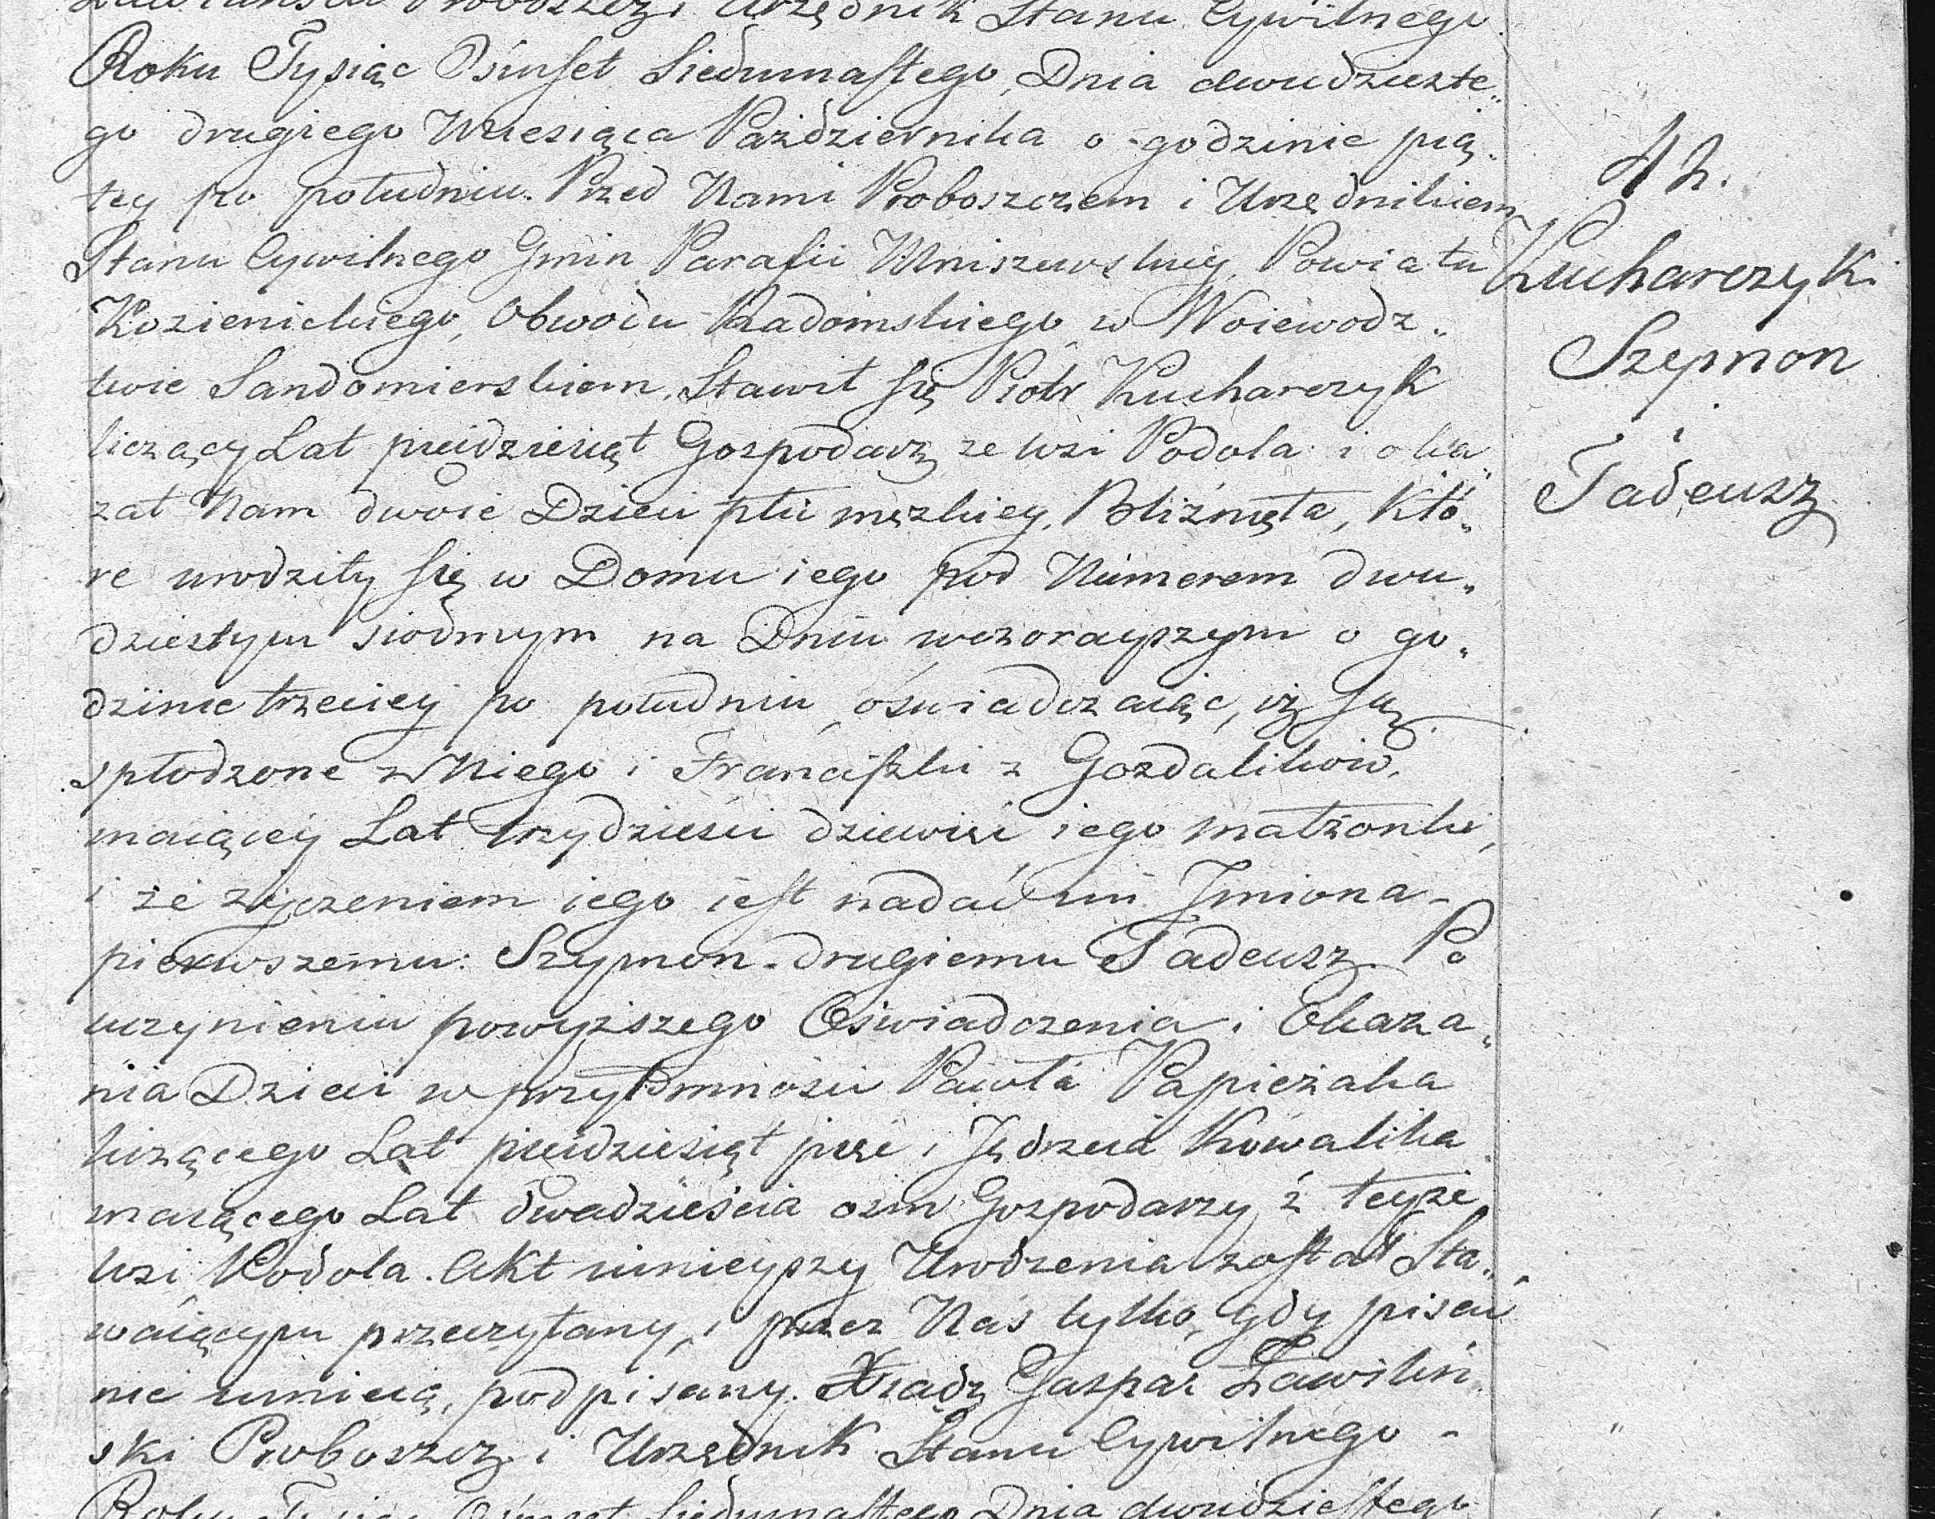 Proboszcz i Urzędnik Stanu Cywilnego
Roku Tysiąc Osmset Siedmnastego, Dnia dwudzieste„
go drugiego Miesiąca Pazdziernika o godzinie pią„
tey po południu. Przed Nami Proboszczem i Urzędnikiem
Stanu Cywilnego Gmin Parafii Mniszewskiey, Powiatu
Kozienickiego, Obwodu Radomskiego w Woiewodz„
twie Sandomierskiem. Stawił się Piotr Kucharczyk
liczący Lat pieidziesiąt Gospodarz ze wsi Podola i oka„
zał Nam dwoie Dzieci płci męzkiey, Bliźnięta, Któ„
re urodziły się w Domu iego pod Numerem dwu„
dziestym siodmym na Dniu wczorayszym o go„
dzinie trzeciey po południu oświadczaiąc, iż są
spłodzone z Niego i Franciszki z Gozdalików,
maiącey Lat trzydzieści dziewięć iego małżonki,
i że życzeniem iego iest nadać im Jmiona
pierwszemu: Szymon. drugiemu Tadeusz. Po
uczynieniu powyższego Oświadczenia i Okaza„
nia Dzieci w przytomności Pawła Papieżaka
liczącego Lat pieidziesiąt pięć i Jędrzeia Kowalika
maiącego Lat dwadzieścia ośm Gospodarzy z teyże
wsi Podola. Akt ninieyszy Urodzenia został Sta„
waiącym przeczytany, i przez Nas tylko, gdy pisać
nie umieią, podpisany. Xiądz Gaspar Ławiliń
ski Proboszcz i Urzędnik Stanu Cywilnego
Roku Tysiąc Ośmset Siedmnastego Dnia dwudziestego
42.
Kucharczyk
Szymon
i
Tadeusz